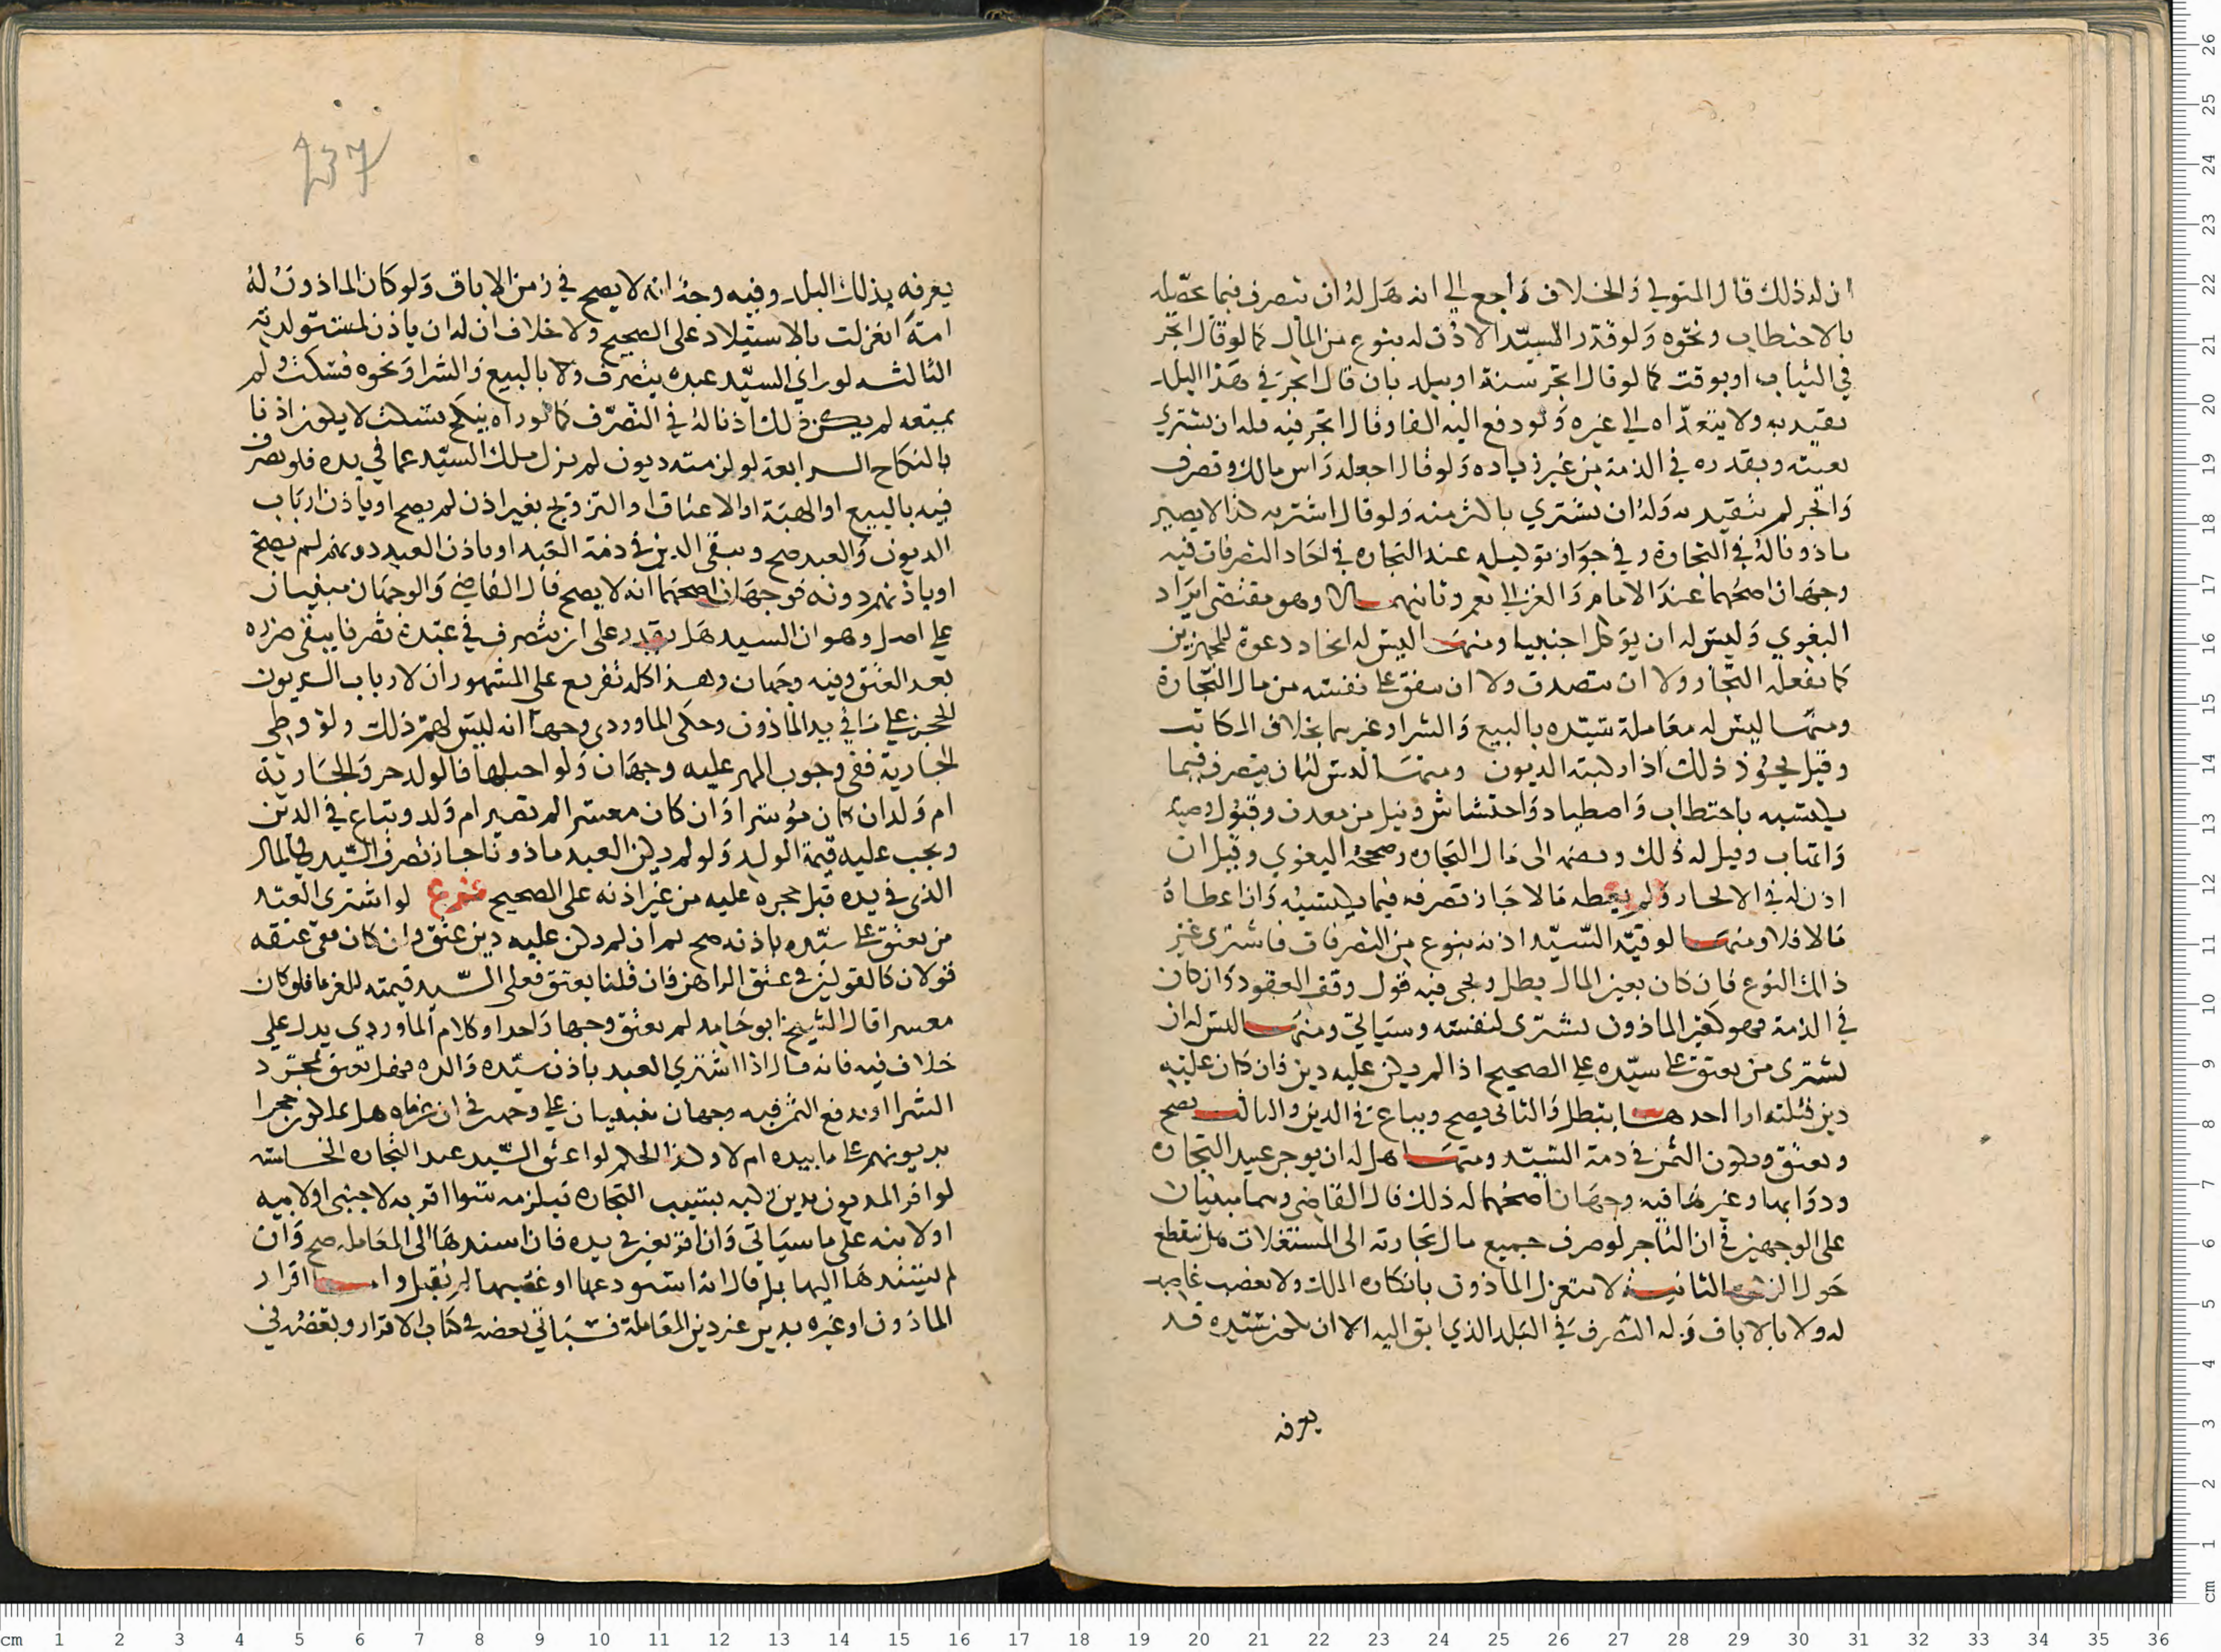 ان له ذلك قال المتولي والخلاف راجع الي انه هل له ان يتصرف فيما يحصله
بالاحتطاب ونحوه ولو قدر السيد الاذن له بنوع من المال كما لو قال اتجر
في الثياب او بوقت كما لو قال اتجر سنة او ببلد بان قال اتجر في هذا البلد
تقيد به ولا يتعداه الي غيره ولو دفع اليه الفا وقال اتجر فيه فله ان يشتري
بعينه وبقدره في الذمة من غير زياده ولو قال اجعله راس مالك وتصرف
واتجر لم يتقيد به وله ان يشتري باكثر منه ولو قال اشتر به كذا لا يصير
ماذونا له في التجارة وفي جواز توكيله عند التجاره في احاد التصرفات فيه
وجهان اصحهما عند الامام والغزالي نعم وثانيهما لا وهو مقتضى ايراد
البغوي وليس له ان يوكل اجنبيا ومنها ليس له اتخاد دعوة للمجهزين
كما يفعله التجار ولا ان يتصدق ولا ان ينفق على نفسه من مال التجارة
ومنها ليس له معاملة سيده بالبيع والشرا وغيرهما بخلاف المكاتب
وقيل يجوز ذلك اذا ركبته الديون ومنها ليس له ان يتصرف فيما
يكتسبه باحتطاب واصطياد واحتشاش ونيل من معدن وقبول وصية
واتهاب وقيل له ذلك وبضمه الى مال التجاره وصححه البغوي وقيل ان
اذن له في الاتجار ولم يعطه مالا جاز تصرفه فيما يكتسبه وان اعطاه
مالا فلا ومنها لو قيد السيد اذنه بنوع من التصرفات فاشترى غير
ذلك النوع فان كان بعين المال بطل ويجي فيه قول وقف العقود وان كان
في الذمة فهو كغير الماذون يشترى لنفسه وسياتي ومنها ليس له ان
يشترى من يعتق على سيده على الصحيح اذا لم يكن عليه دين فان كان عليه
دين فثلثه اوا احدها يبطل والثاني يصح ويباع في الدين والثالث يصح
ويعتق ويكون الثمن في دمة السيد ومنها هل له ان يوجر عبيد التجاره
ودوابها وغيرها فيه وجهان اصحهما له ذلك قال القاضي وهما مبنيان
على الوجهين في ان التاجر لو صرف جميع مال تجارته الى المستغلات هل ينقطع
حول الزكوه الثانية لا ينعزل الماذون بانكاره الملك ولا بغصب غاصب
له ولا بالاباق وله التصرف في البلد الذي ابق اليه الا ان يكون سيده قد
يعرفه
237
يعرفه بذلك البلد وفيه وجه انه لا يصح في زمن الاباق ولو كان الماذون له
امة انعزلت بالاستيلاد على الصحيح ولا خلاف ان له ان ياذن لمستولدته
الثالثه لو راي السيد عبده يتصرف ولا بالبيع والشرا ونحوه فسكت ولم
يمنعه لم يكن ذلك اذنا له في التصرف كما لو راه ينكح فسكت لا يكون اذنا
بالنكاح الرابعة لو لزمته ديون لم يزل ملك السيد عما في يده فلو تصرف
فيه بالبيع او الهبة او الاعتاق او التزويج بغير اذن لم يصح او ياذن ارباب
الديون والعبد صح ويبقى الدين في ذمة العبد او باذن العبد دونهم لم يصح
او باذنهم دونه فوجهان اصحهما انه لا يصح قال القاضي والوجهان مبنيان
علي اصل وهو ان السيد هل يقدر على ان يتصرف في عبده تصرفا يبقى ضرره
بعد العتق وفيه وجهان وهذا كله تفريع علي المشهور ان لارباب الديون
الحجز علي ما في يد الماذون وحكى الماوردي وجها انه ليس لهم ذلك ولو وطي
الجارية ففي وجوب المهر عليه وجهان ولو احبلها فالولد حر والجارية
ام ولد ان كان موسرا وان كان معسرا لم تصير ام ولد وتباع في الدين
ويجب عليه قيمة الولد ولو لم يكن العبد ماذونا جاز تصرف السيد في المال
الذي في يده قبل حجره عليه من غير اذنه على الصحيح فرع لو اشترى العبد
من يعتق على سيده باذنه صح ثم ان لم يكن عليه دين عتق وان كان ففي عتقه
قولان كالقولين في عتق الراهن فان قلنا يعتق فعلى السيد قيمته للغرما فلو كان
معسرا قال الشيخ ابو حامد لم يعتق وجها واحدا وكلام الماوردي يدل علي
خلاف فيه فانه قال اذا اشتري العبد باذن سيده والده فهل يعتق بمجرد
الشرا او بدفع الثمن فيه وجهان مبنيان علي وجهين في ان غرماه هل يملكون حجرا
بديونهم على ما بيده ام لا وكذا الحكم لو اعتق السيد عبد التجاره الخامسه
لو اقر المديون بدين ركبه بسبب التجاره فيلزمه سوا اقر به لاجنبي او لابيه
او لابنه على ما سياتي وان اقر بعين في يده فان اسندها الى المعامله صح وان
لم يسندها اليها بل قال انه استودعها او غصبها لم يقبل واما اقرار
الماذون او غيره بدين غير دين المعاملة فسياتي بعضه في كتاب الاقرار وبعضه في